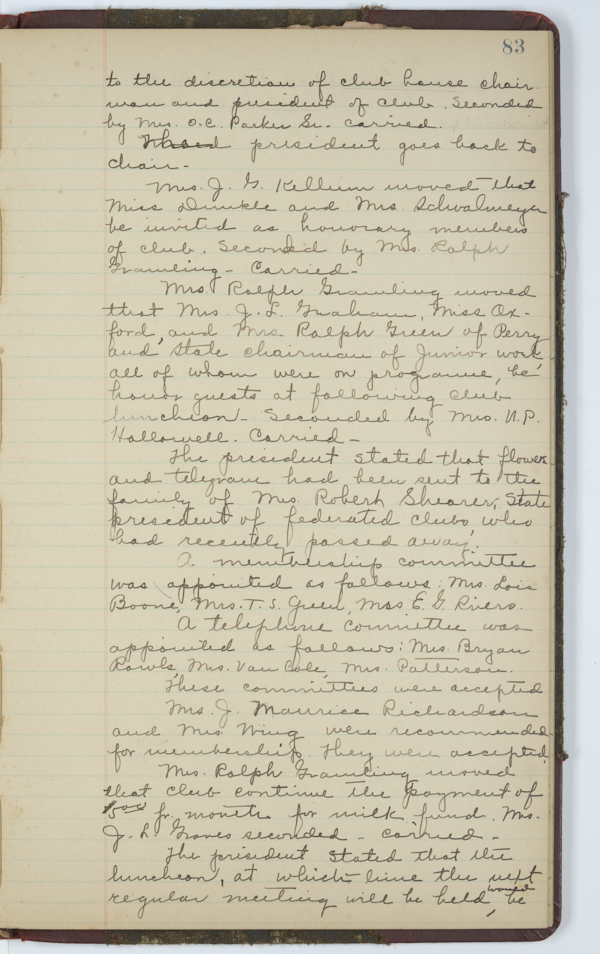 83
to the discretion of club house chair
man and president of club. Seconded
by Mrs. O.C. Parker Sr. - carried.
president goes back to
chair -
Mrs. J. G. Kellum moved that
Miss Dunkle and Mrs. Schwalmeyer
be invited as honorary members
of club. Seconded by Mrs. Ralph
Gramling - Carried -
Mrs. Ralph Gramling moved
that Mrs. J. L. Graham, Miss Ox-
ford, and Mrs Ralph Green of Perry
and State chairman of Junior work,
all of whom were on programe, be
honor guests at following club
luncheon - Seconded by Mrs. N.P.
Hallowell. Carried -
The president stated that flowers
and telegram had been sent to the
family of Mrs. Robert Shearer, State
president of federated clubs, who
had recently passed away.
A membership committee
was appointed as follows: Mrs. Lois
Boone, Mrs. T. S. Green, Mrs E. G. Rivers.
A telephone committee was
appointed as follows: Mrs. Bryan
Rawls, Mrs. Van Cole, Mrs. Patterson.
These committees were accepted
Mrs. J. Maurice Richardson
and Mrs Wing were recommended
for membership. They were accepted.
Mrs. Ralph Gramling moved
that club continue the payment of
$5.00 fr. month for milk fund. Mrs.
J. L. Graves seconded - carried -
The president stated that the
luncheon, at which time the next
regular meeting will be held, would be